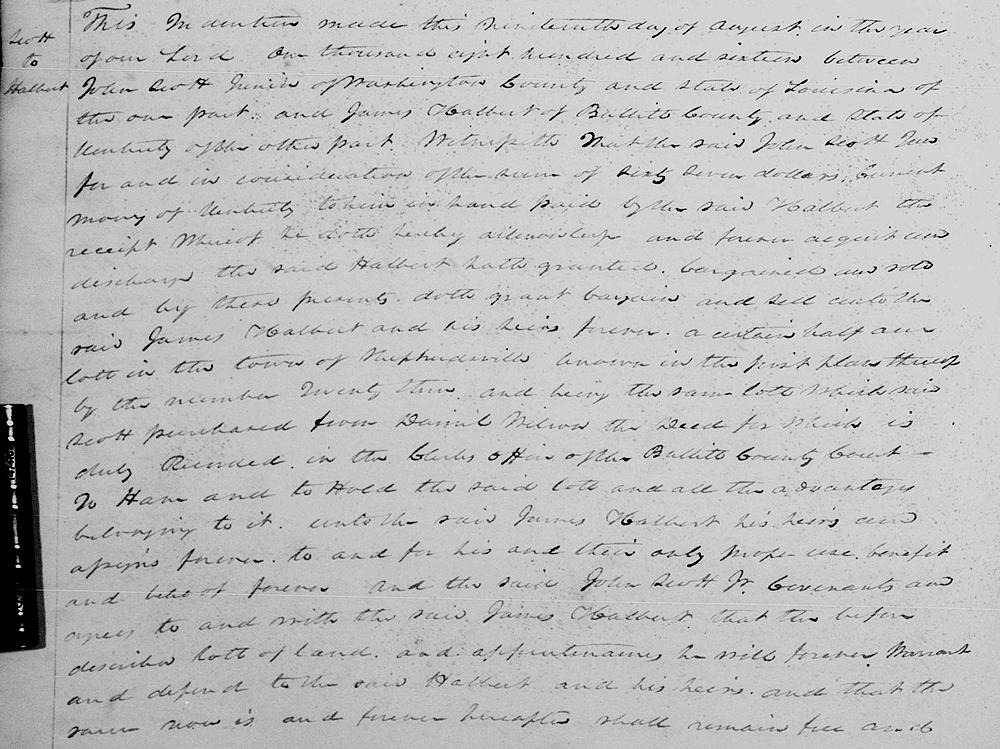 Scott
to
Halbert
This Indenture made this nineteenth day of August in the year
of our Lord One thousand eight hundred and sixteen between
John Scott Junior of Washington County and State of Louisiana of
the one part. and James Halbert of Bullitt County and State of
Kentucky of the other part Witnesseth That the said John Scott Jun
for and in consideration of the sum of Sixty Seven dollars, Current
money of Kentucky to him in hand paid by the said Halbert the
receipt Whereof he doth hereby acknowledge and forever acquit and
discharge the said Halbert hath granted. bargained and sold
and by these presents. doth grant bargain and sell unto the
said James Halbert and his heirs forever. a certain half acre
lott in the town of Shepherdsville known in the plan thereof
by the number Twenty three. and being the same lott which said
Scott purchased from Daniel Wilson the Deed for which is
duly Recorded. in the Clerks Office of the Bullitt County Court —
To Have and to Hold the said lott and all the advantages
belonging to it unto the said James Halbert his heirs and
assigns forever. to and for his and their only proper use. benefit
and behoof forever and the said John Scott Jr. Covenants and
agrees to and with the said James Halbert that the before
described lott of land. and appurtenances he will forever Warrant
and defend to the said Halbert and his heirs. and that the
same now is and forever hereafter shall remain free and